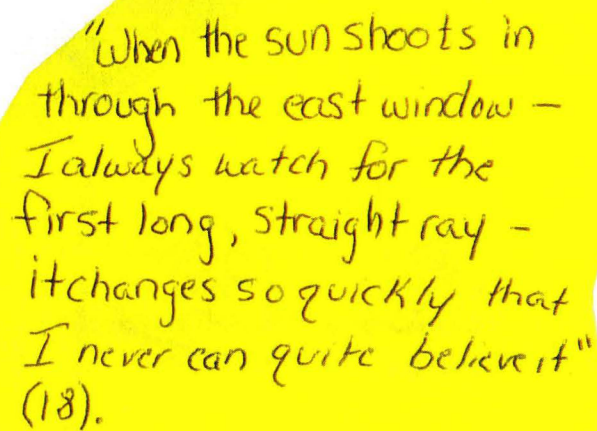 "When the sun shoots in
through the east window –
I always watch for the
first long, straight ray –
it changes so quickly that
I never can quite believe it"
(18).